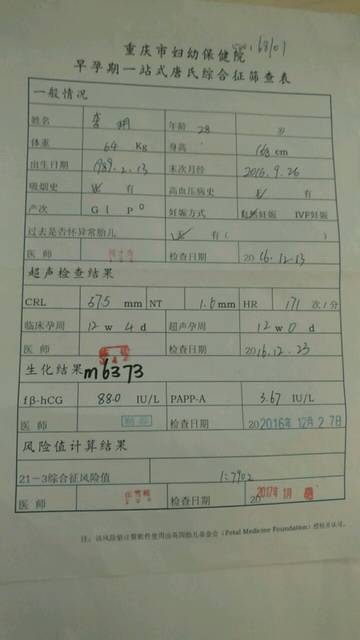 重庆市妇幼保健院
早孕期一站式唐氏综合征筛查表
一般情况
姓名 李 年龄 28 岁
体重 64 Kg 身高 168 cm
出生日期 1989.2.13 末次月经 2016.9.26
吸烟史 有 高血压病史 有
产次 G 1 P 0 妊娠方式 自然妊娠 IVF妊娠
过去是否怀异常胎儿 有( )
医师 检查日期 2016.12.13
超声检查结果
CRL 575 mm NT 1.6 mm HR 171 次/分
临床孕周 12 w 4 d 超声孕周 12 w 0 d
医师 检查日期 2016.12.23
生化结果 m6373
fβ-hCG 88.0 IU/L PAPP-A 3.67 IU/L
医师 检查日期 20 2016年12月27日
风险值计算结果
21-3综合征风险值 1:7902
医师 检查日期 20 2017年1月
注:该风险值计算软件使用由英国胎儿基金会(Fetal Medicine Foundation)授权并认可。